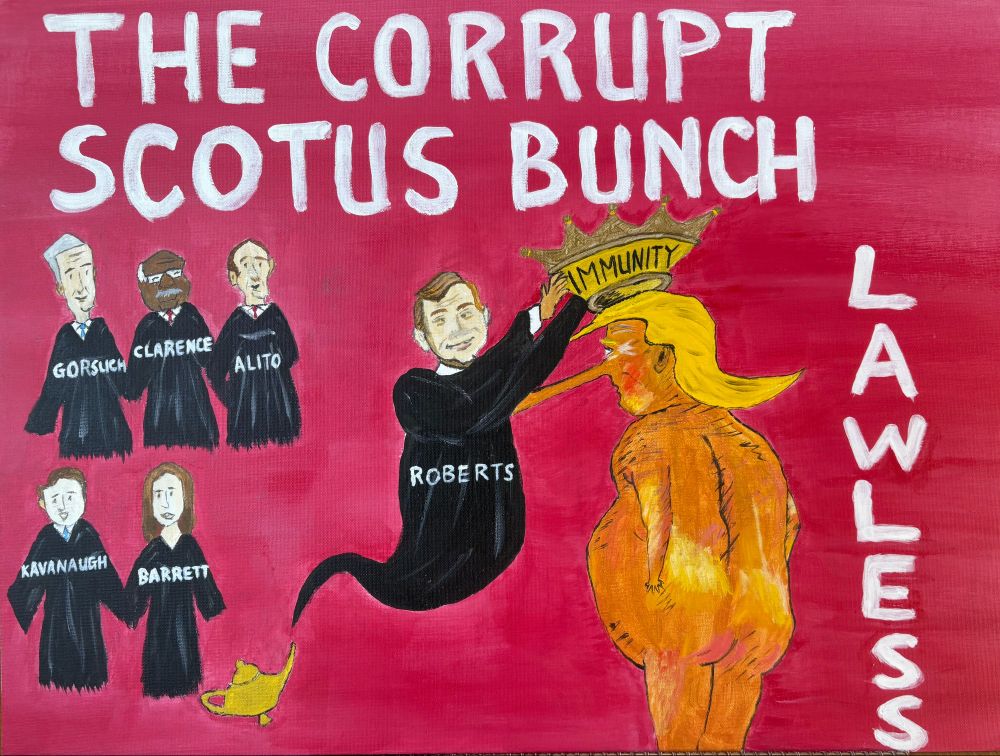 THE CORRUPT
SCOTUS BUNCH
IMMUNITY
GORSUCH
CLARENCE
ALITO
ROBERTS
KAVANAUGH
BARRETT
LAWLESS